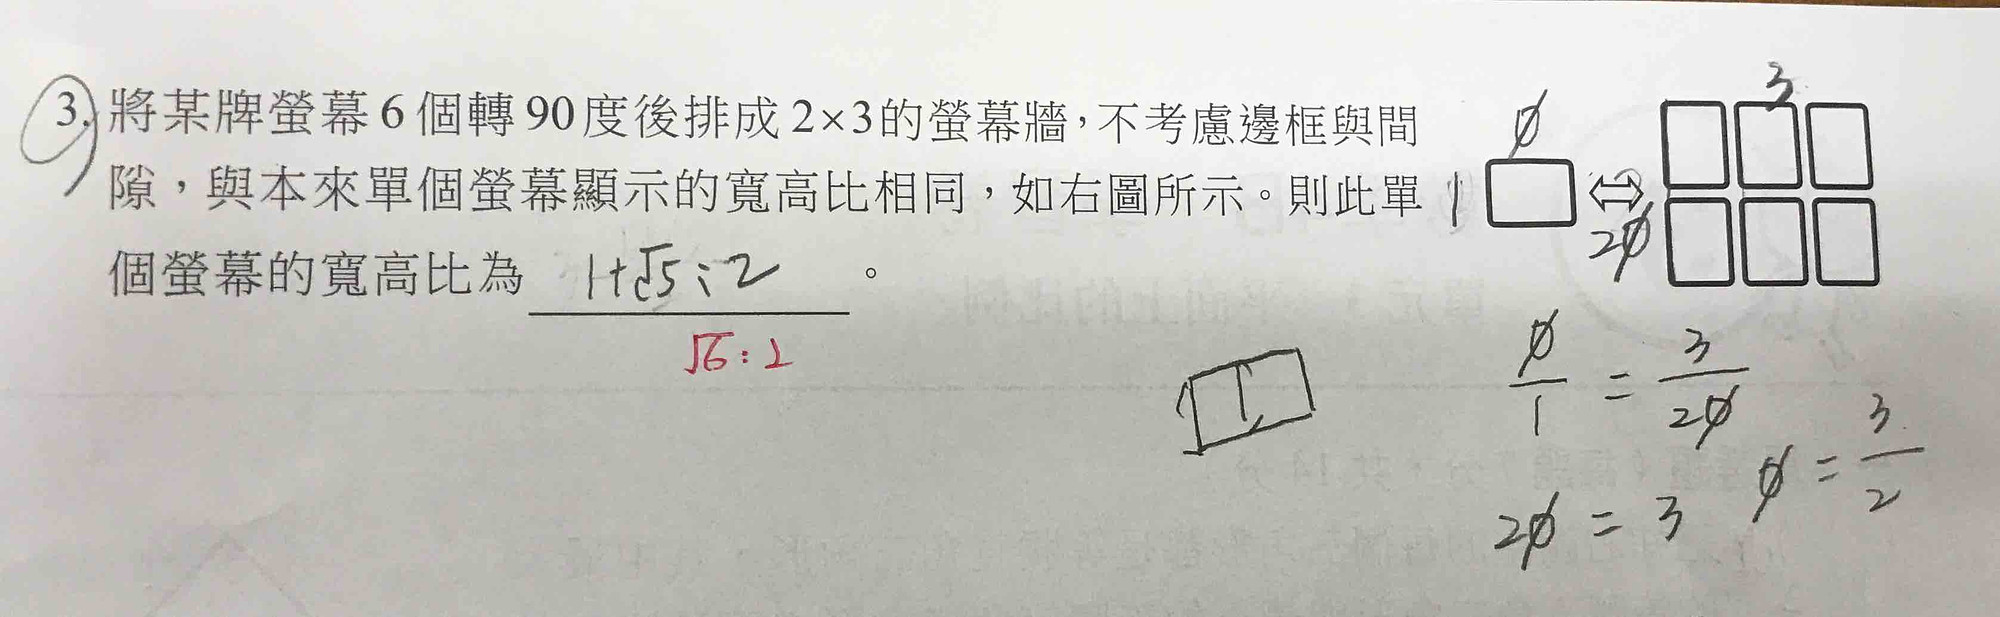 3. 將某牌螢幕6個轉90度後排成2×3的螢幕牆，不考慮邊框與間
隙，與本來單個螢幕顯示的寬高比相同，如右圖所示。則此單
個螢幕的寬高比為 1+√5:2 。
√6:2
ϕ
1
3
2ϕ
ϕ/1 = 3/2ϕ
2ϕ = 3
ϕ = 3/2